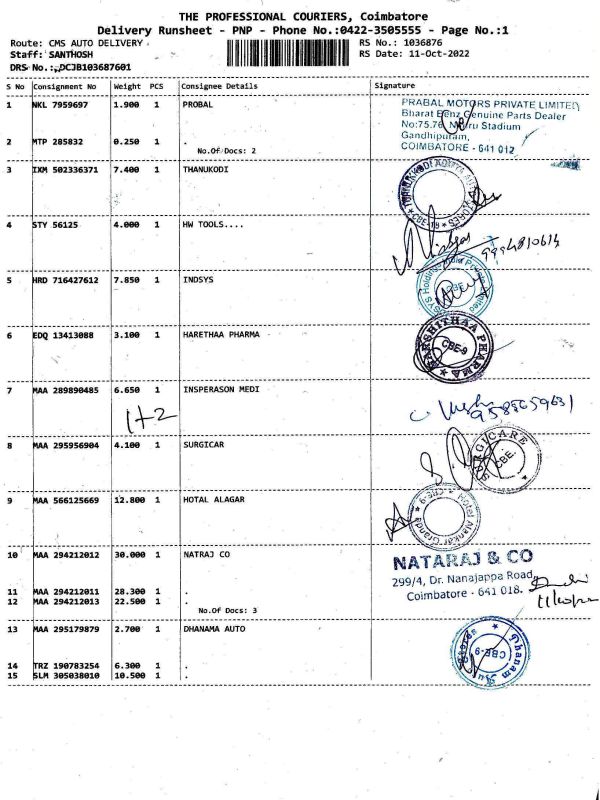 THE PROFESSIONAL COURIERS, Coimbatore
Delivery Runsheet - PNP - Phone No.:0422-3505555 - Page No.:1
Route: CMS AUTO DELIVERY RS No.: 1036876
Staff: SANTHOSH RS Date: 11-Oct-2022
DRS No.: DCJB103687601
S No Consignment No Weight PCS Consignee Details Signature
1 NKL 7959697 1.900 1 PROBAL
PRABAL MOTORS PRIVATE LIMITED
Bharat Benz Genuine Parts Dealer
No:75.76, Nehru Stadium
Gandhipuram,
COIMBATORE - 641 012
2 MTP 285832 0.250 1 .
No.Of Docs: 2
3 IXM 502336371 7.400 1 THANUKODI
CBE-18
4 STY 56125 4.000 1 HW TOOLS....
9994810614
5 HRD 716427612 7.850 1 INDSYS
6 EDQ 13413088 3.100 1 HARETHAA PHARMA
HARSHITHAA PHARMA
CBE-9
7 MAA 289890485 6.650 1 INSPERASON MEDI
1+2
8 MAA 295956904 4.100 1 SURGICAR
SURGICARE
CBE.
9 MAA 566125669 12.800 1 HOTAL ALAGAR
CBE-9
10 MAA 294212012 30.000 1 NATRAJ CO
NATARAJ & CO
299/4, Dr. Nanajappa Road,
Coimbatore - 641 018.
11 MAA 294212011 28.300 1 .
12 MAA 294212013 22.500 1 .
No.Of Docs: 3
13 MAA 295179879 2.700 1 DHANAMA AUTO
CBE-9
14 TRZ 190783254 6.300 1 .
15 SLM 305038010 10.500 1 .